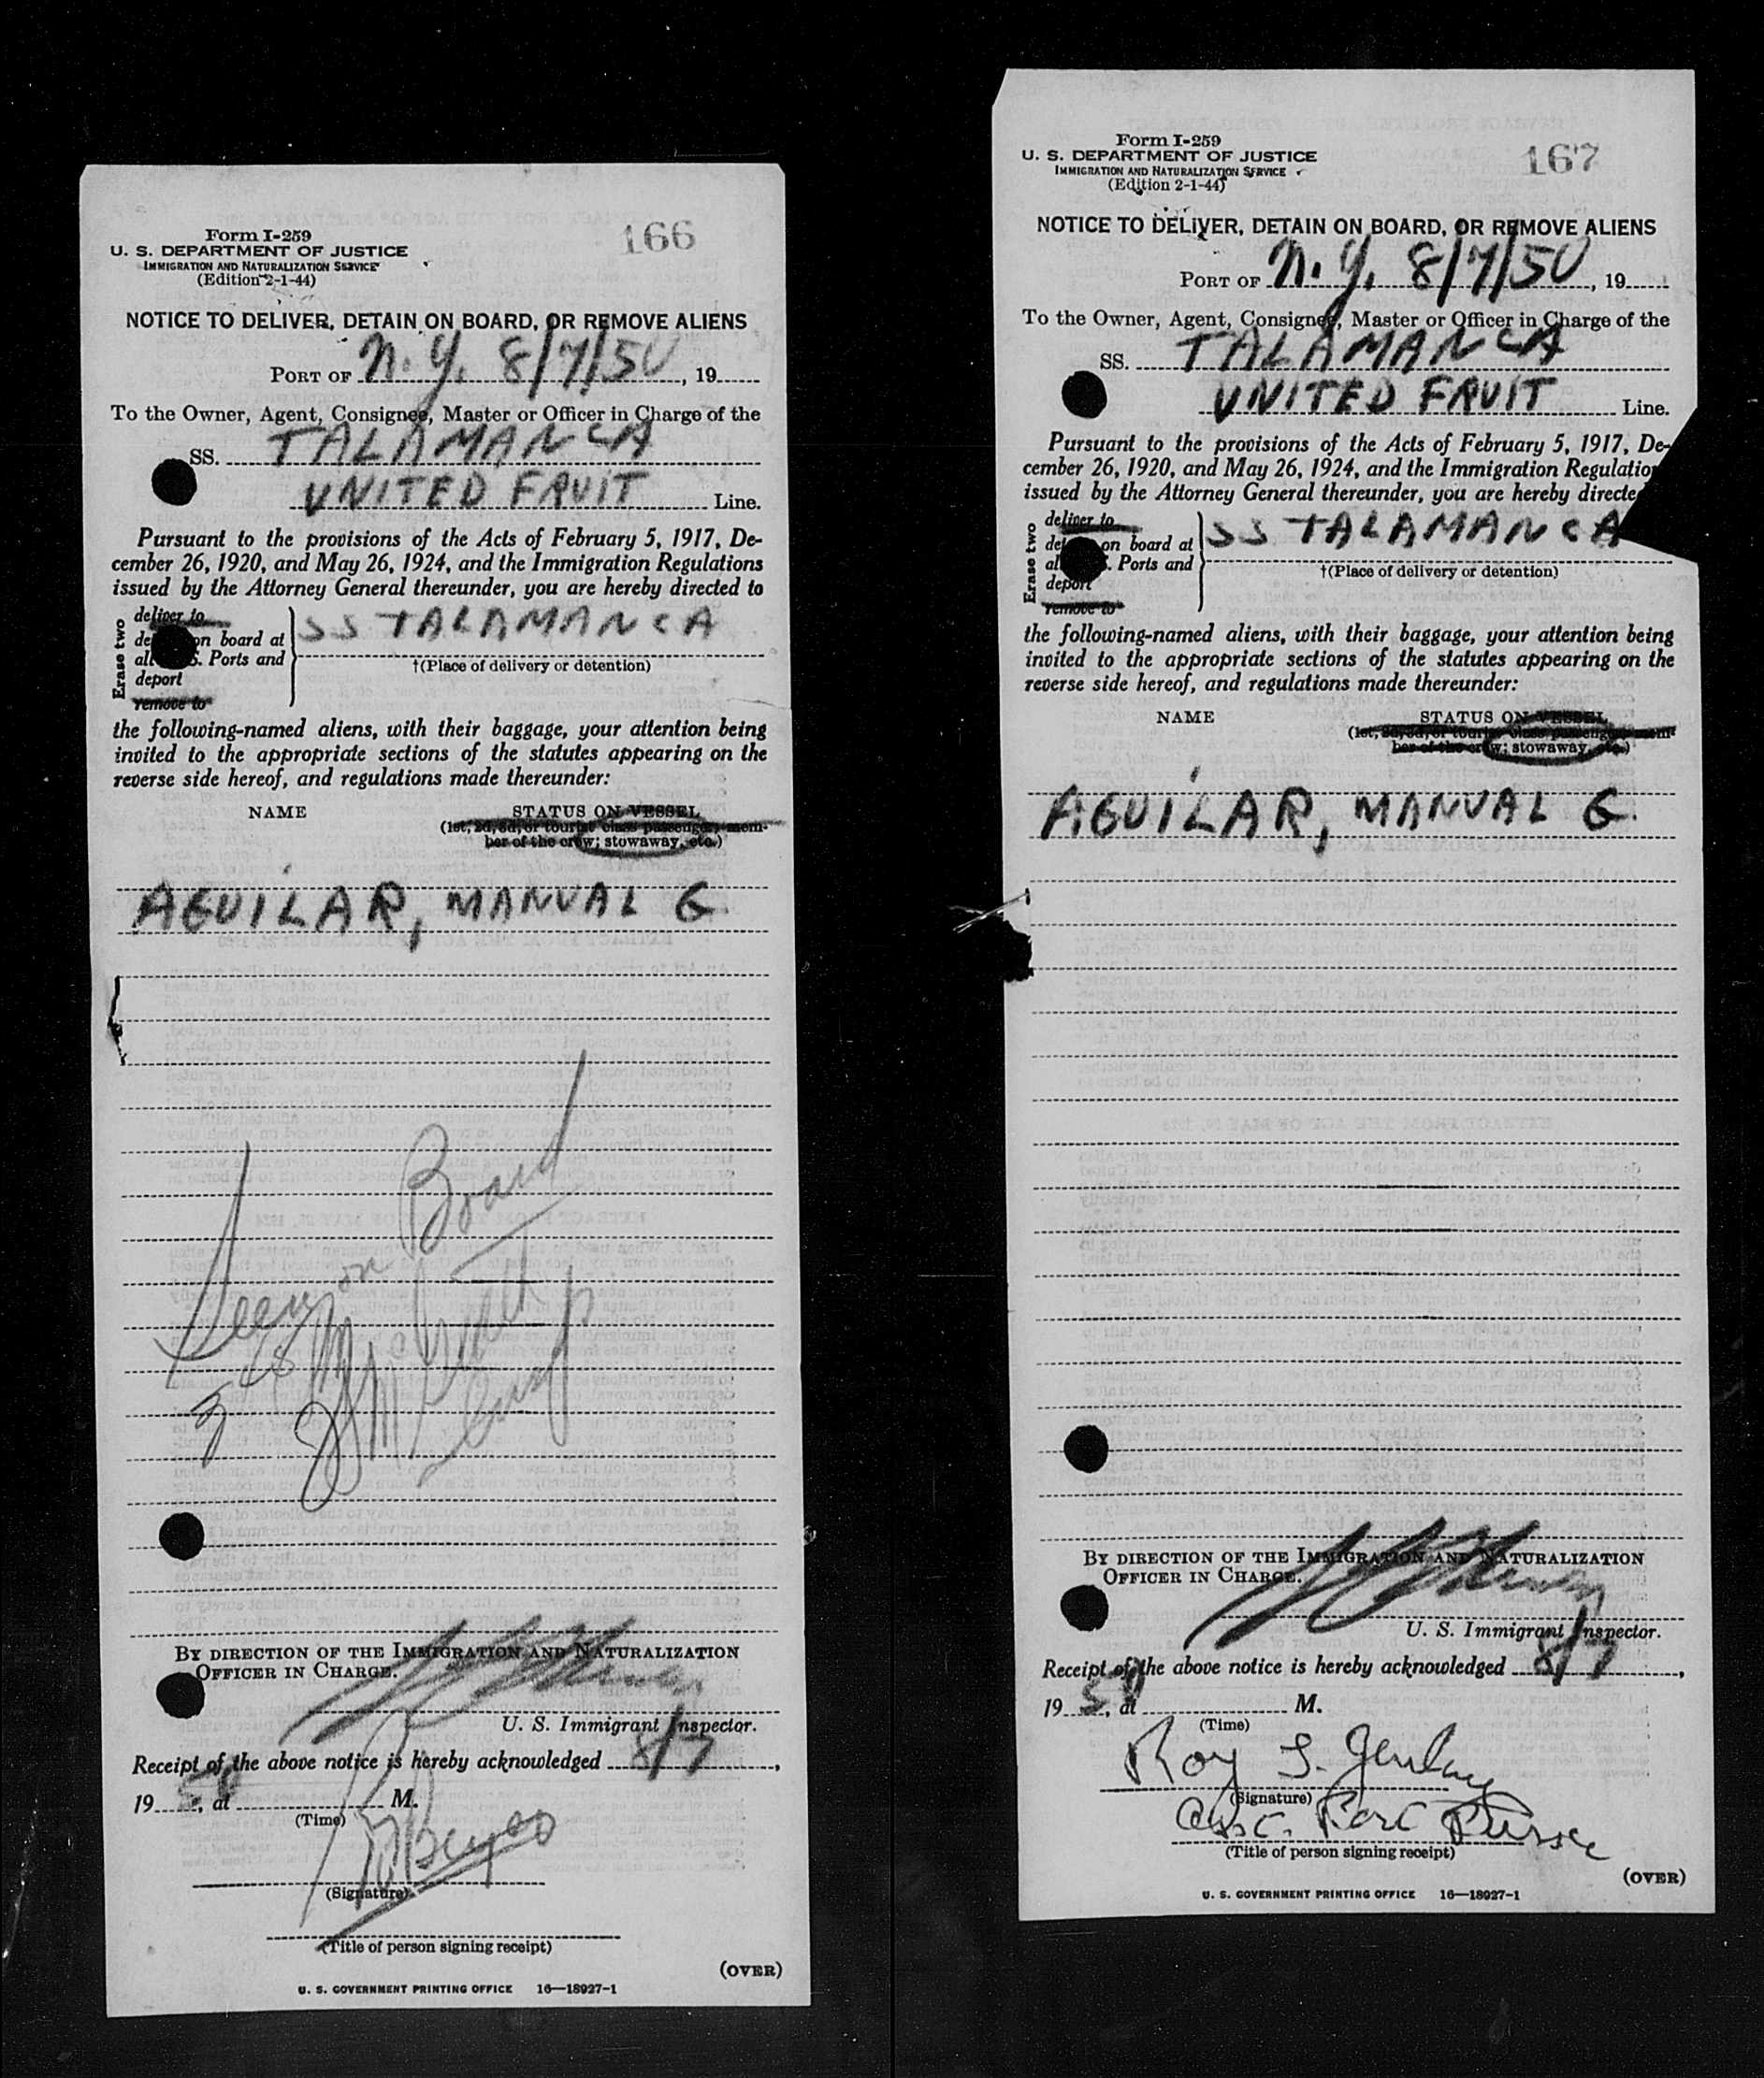 166
Form I-259
U. S. DEPARTMENT OF JUSTICE
IMMIGRATION AND NATURALIZATION SERVICE
(Edition 2-1-44)
NOTICE TO DELIVER, DETAIN ON BOARD, OR REMOVE ALIENS
PORT OF N. Y. 8/7/50, 19
To the Owner, Agent, Consignee, Master or Officer in Charge of the
SS. TALAMANCA
UNITED FRUIT Line.
Pursuant to the provisions of the Acts of February 5, 1917, De-
cember 26, 1920, and May 26, 1924, and the Immigration Regulations
issued by the Attorney General thereunder, you are hereby directed to
Erase two
deliver to
on board at
Ports and
deport
remove to
SS TALAMANCA
†(Place of delivery or detention)
the following-named aliens, with their baggage, your attention being
invited to the appropriate sections of the statutes appearing on the
reverse side hereof, and regulations made thereunder:
NAME STATUS ON VESSEL
(1st, 2d, 3d, or tourist class passenger, mem-
ber of the crew; stowaway, etc.)
AGUILAR, MANUAL G.
Seen on Board
BY DIRECTION OF THE IMMIGRATION AND NATURALIZATION
OFFICER IN CHARGE.
U. S. Immigrant Inspector.
Receipt of the above notice is hereby acknowledged 8/7,
19 50, at M.
(Time)
(Signature)
(Title of person signing receipt)
(OVER)
U. S. GOVERNMENT PRINTING OFFICE 16—18927-1
167
Form I-259
U. S. DEPARTMENT OF JUSTICE
IMMIGRATION AND NATURALIZATION SERVICE
(Edition 2-1-44)
NOTICE TO DELIVER, DETAIN ON BOARD, OR REMOVE ALIENS
PORT OF N. Y. 8/7/50, 19
To the Owner, Agent, Consignee, Master or Officer in Charge of the
SS. TALAMANCA
UNITED FRUIT Line.
Pursuant to the provisions of the Acts of February 5, 1917, De-
cember 26, 1920, and May 26, 1924, and the Immigration Regulation
issued by the Attorney General thereunder, you are hereby directe
Erase two
deliver to
on board at
Ports and
deport
remove to
SS TALAMANCA
†(Place of delivery or detention)
the following-named aliens, with their baggage, your attention being
invited to the appropriate sections of the statutes appearing on the
reverse side hereof, and regulations made thereunder:
NAME STATUS ON VESSEL
(1st, 2d, 3d, or tourist class passenger, mem-
ber of the crew; stowaway, etc.)
AGUILAR, MANUAL G.
BY DIRECTION OF THE IMMIGRATION AND NATURALIZATION
OFFICER IN CHARGE.
U. S. Immigrant Inspector.
Receipt of the above notice is hereby acknowledged 8/7,
19 50, at M.
(Time)
Roy S.
(Signature)
Purser
(Title of person signing receipt)
(OVER)
U. S. GOVERNMENT PRINTING OFFICE 16—18927-1